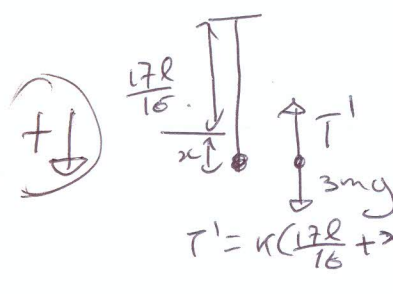 17l
16
x
T'
+
3mg
T' = K(17l/16 +